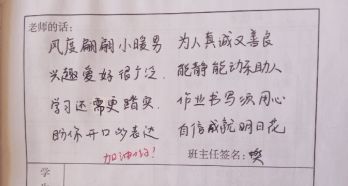 老师的话：
风度翩翩小暖男 为人真诚又善良
兴趣爱好很广泛. 能静能动乐助人
学习还需更踏实. 作业书写须用心
盼你开口多表达 自信成就明日花
加油你好!
班主任签名:
学